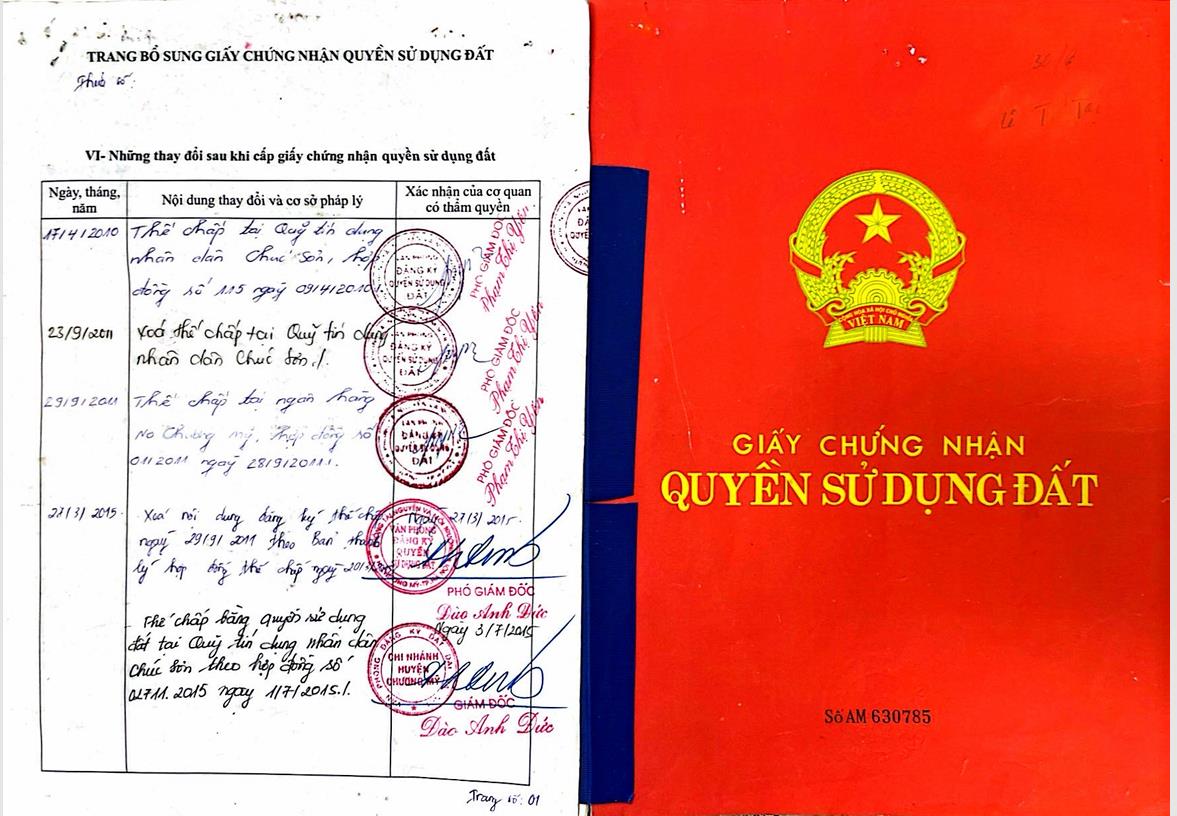 TRANG BỔ SUNG GIẤY CHỨNG NHẬN QUYỀN SỬ DỤNG ĐẤT
Thửa số:
VI- Những thay đổi sau khi cấp giấy chứng nhận quyền sử dụng đất
Ngày, tháng, năm
Nội dung thay đổi và cơ sở pháp lý
Xác nhận của cơ quan có thẩm quyền
17/4/2010
Thế chấp tại Quỹ tín dụng
nhân dân Chúc Sơn, hợp
đồng số 115 ngày 09/4/2010
ĐĂNG KÝ
QUYỀN SỬ DỤNG
ĐẤT
PHÓ GIÁM ĐỐC
Phạm Thị Yên
23/9/2011
Xoá thế chấp tại Quỹ tín dụng
nhân dân Chúc Sơn./.
ĐĂNG KÝ
QUYỀN SỬ DỤNG
ĐẤT
PHÓ GIÁM ĐỐC
Phạm Thị Yên
29/9/2011
Thế chấp tại ngân hàng
No Chương mỹ, hợp đồng số
01/2011 ngày 28/9/2011.
ĐĂNG KÝ
QUYỀN SỬ DỤNG
ĐẤT
PHÓ GIÁM ĐỐC
Phạm Thị Yên
27/3/2015
Xoá nội dung đăng ký thế chấp
ngày 29/9/2011 theo Bản thanh
lý hợp đồng thế chấp ngày
27/3/2015
VĂN PHÒNG
ĐĂNG KÝ
QUYỀN
SỬ DỤNG ĐẤT
PHÓ GIÁM ĐỐC
Đào Anh Đức
Thế chấp bằng quyền sử dụng
đất tại Quỹ tín dụng nhân dân
Chúc Sơn theo hợp đồng số
ngày 1/7/2015./.
Ngày 3/7/2015
VĂN PHÒNG ĐĂNG KÝ ĐẤT ĐAI
CHI NHÁNH
HUYỆN
CHƯƠNG MỸ
GIÁM ĐỐC
Đào Anh Đức
Trang số: 01
30/6
Lê T
CỘNG HÒA XÃ HỘI CHỦ NGHĨA
VIỆT NAM
GIẤY CHỨNG NHẬN
QUYỀN SỬ DỤNG ĐẤT
Số AM 630785